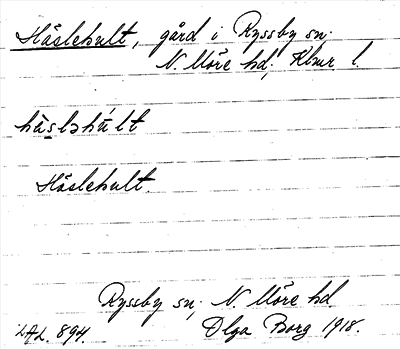 Håslehult, gård i Ryssby sn.
N. Möre hd, Klmr l.
hå̀sləhúlt
Håslehult.
Ryssby sn, N. Möre hd
LAL. 894. Olga Borg 1918.